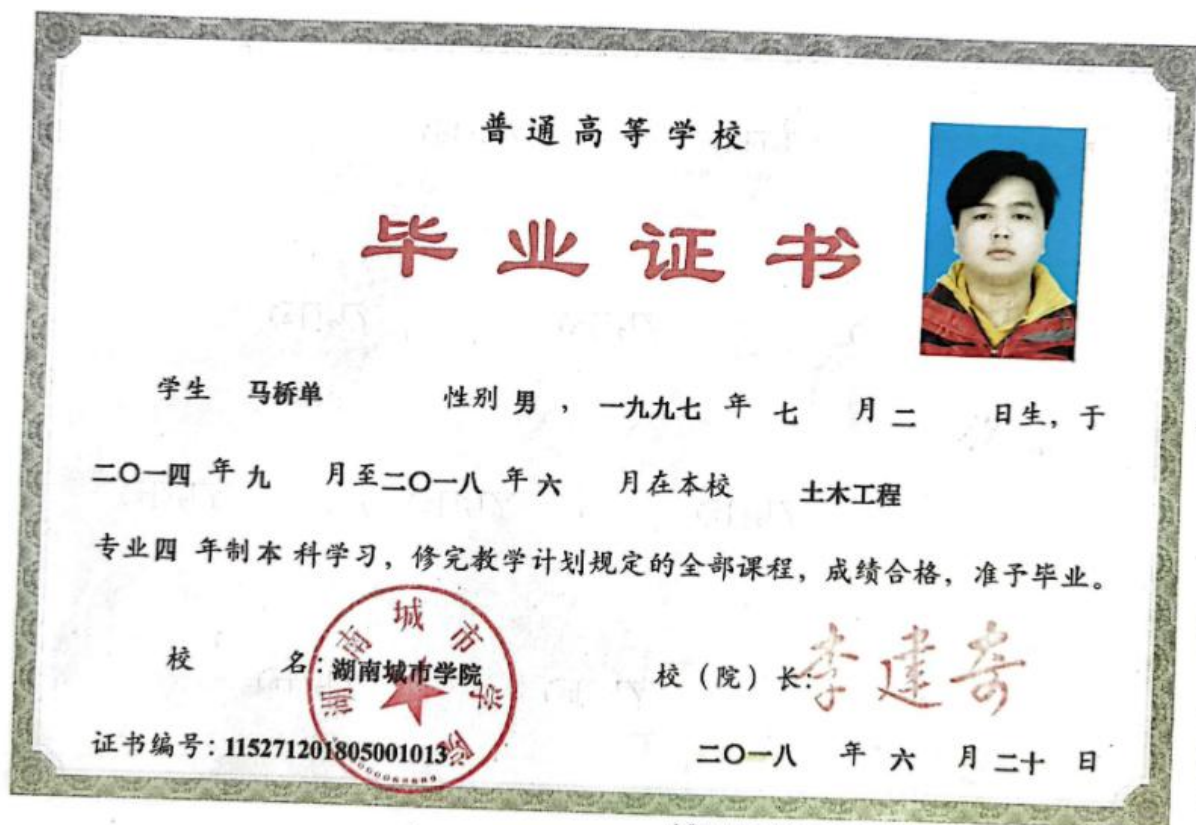 普通高等学校
毕业证书
学生 马桥单 性别 男 ， 一九九七 年 七 月 二 日生，于
二〇一四 年 九 月至 二〇一八 年 六 月在本校 土木工程
专业 四 年制 本 科学习，修完教学计划规定的全部课程，成绩合格，准予毕业。
校 名：湖南城市学院 校（院）长：李建奇
湖南城市学院
证书编号：115271201805001013 二〇一八 年 六 月 二十 日